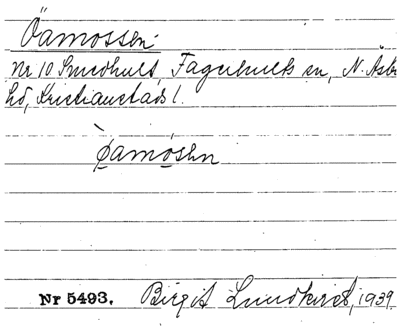 Öamossen:
Nr 10 Smedhult, Fagerhults sn, N. Åsbo
hd, Kristianstads l.
Öamósen
Nr 5493. Birgit Lundkvist, 1939.